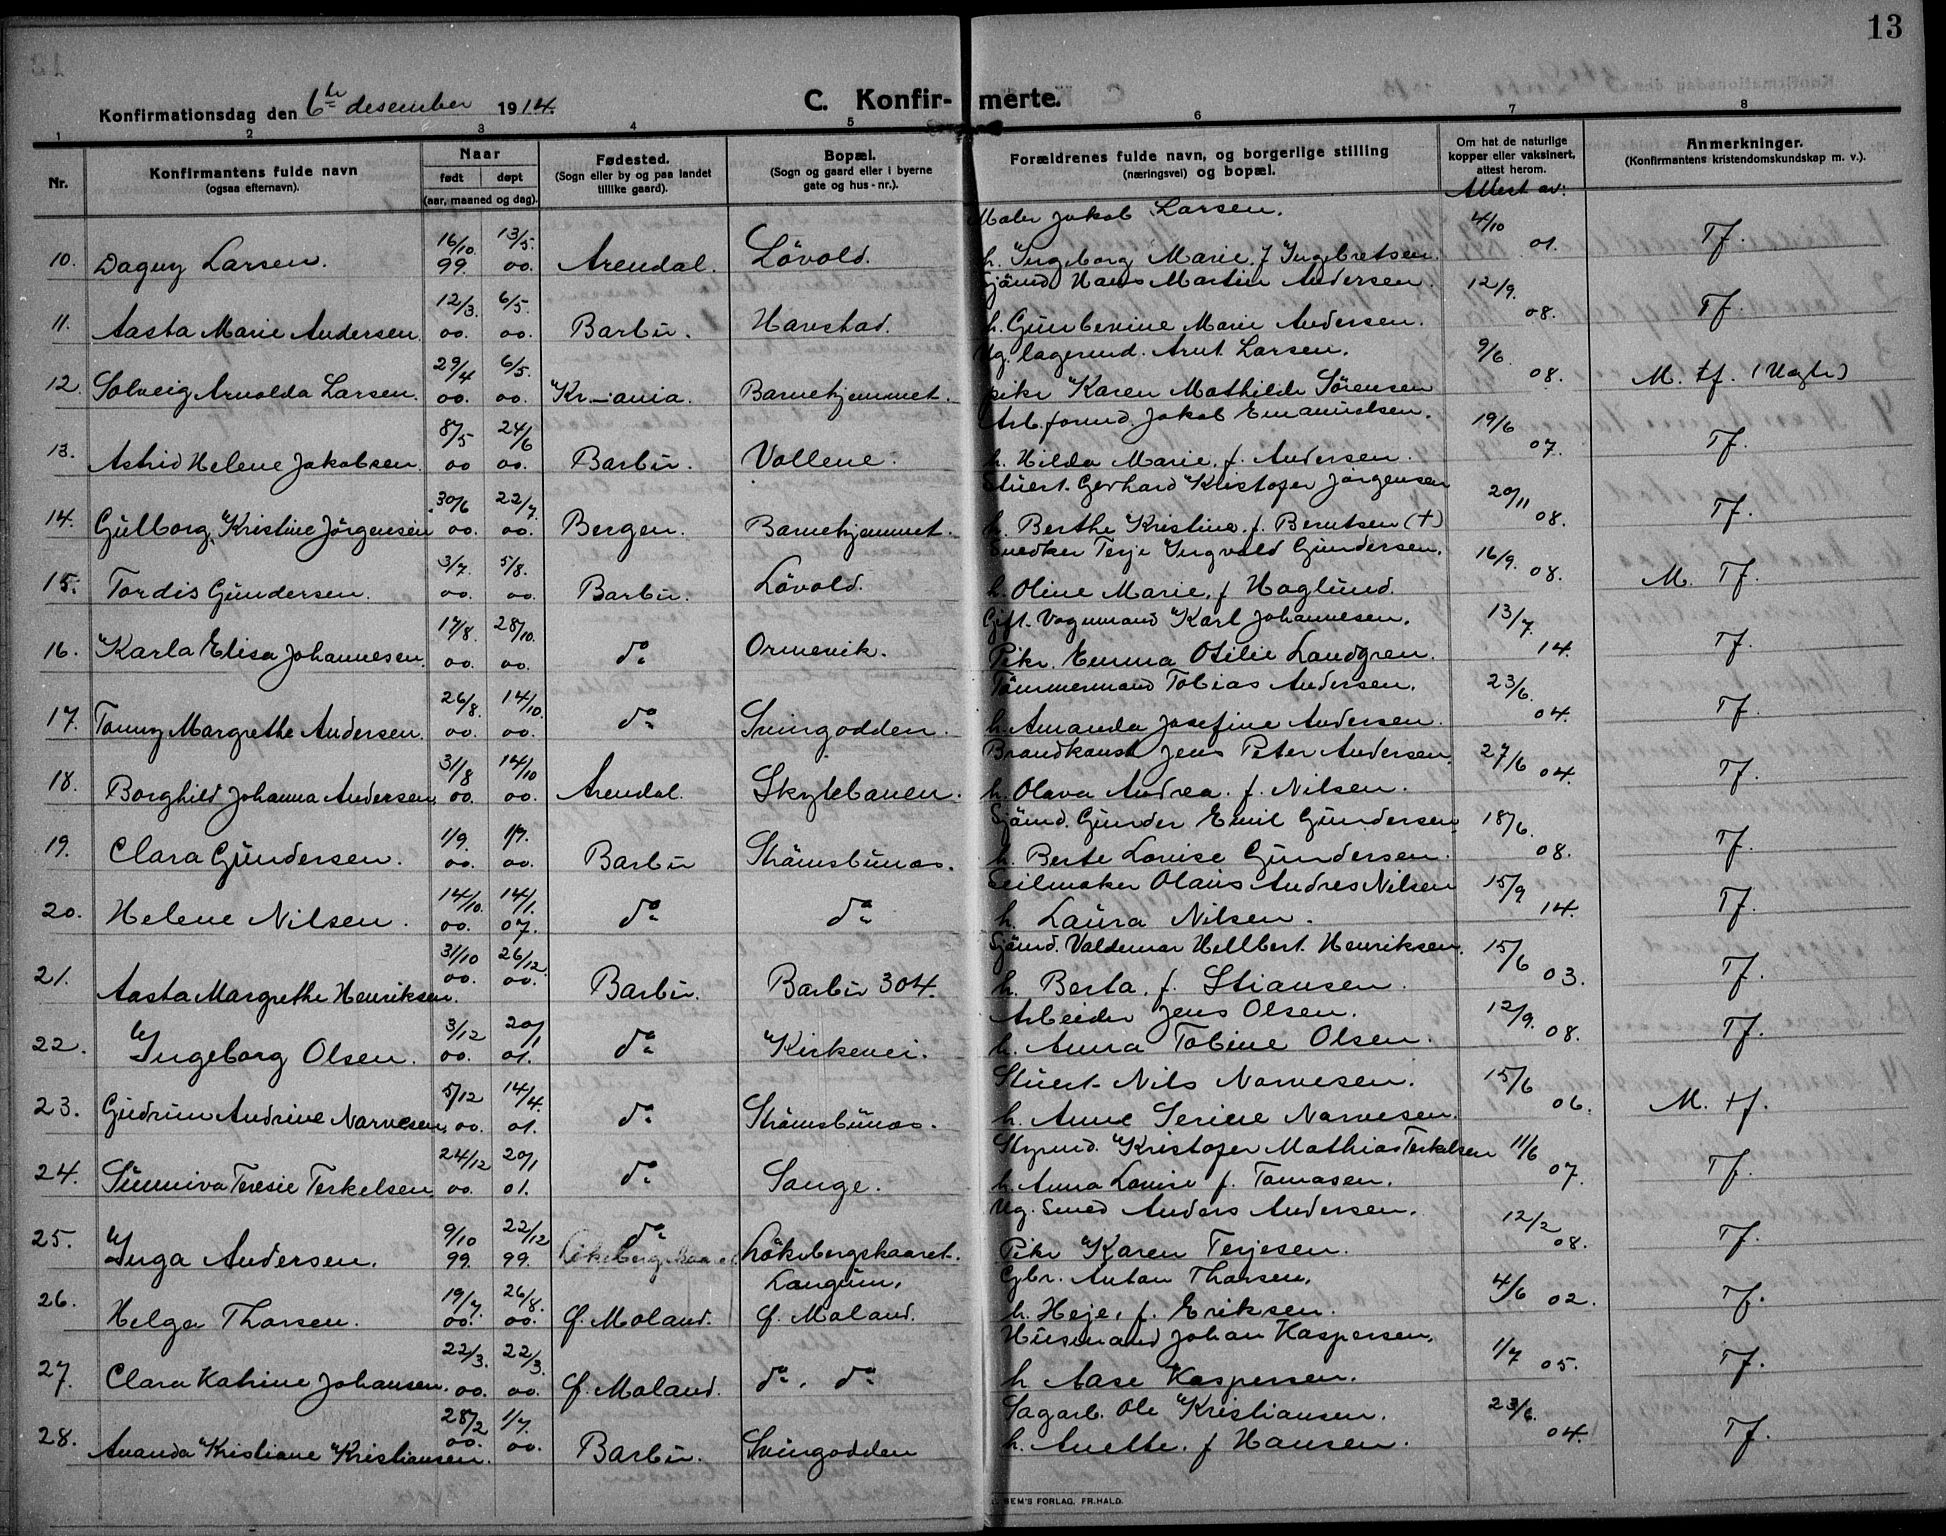 13
Konfirmationsdag den 6te desember 1914.
C. Konfirmerte.
1 2 3 4 5 6 7 8
Nr.
Konfirmantens fulde navn
(ogsaa efternavn).
Naar
født døpt
(aar, maaned og dag).
Fødested.
(Sogn eller by og paa landet
tillike gaard).
Bopæl.
(Sogn og gaard eller i byerne
gate og hus-nr.).
Forældrenes fulde navn, og borgerlige stilling
(næringsvei) og bopæl.
Om hat de naturlige
kopper eller vaksinert,
attest herom.
Attest av:
Anmerkninger.
(Konfirmantens kristendomskundskap m. v.).
Maler Jakob Larsen. 4/10
10. Dagny Larsen. 16/10 99. 13/5. 00. Arendal. Lövold. h. Ingeborg Marie f Ingebretsen. 01. Tf.
Sjömd Hans Martin Andersen. 12/9.
11. Aasta Marie Andersen. 12/3. 00. 6/5. 00. Barbu. Havstad. h. Gunbevine Marie Andersen. 08. Tf.
Ug. lagermd. Arnt Larsen. 9/6
12. Solveig Arnolda Larsen. 29/4 00. 6/5. 00. Kr-ania. Barnehjemmet. pike Karen Mathilde Sørensen 08. M. tf. (Uegte)
Arb.formd. Jakob Emanuelsen. 19/6
13. Astrid Helene Jakobsen. 8/5 00 24/6 00. Barbu. Vollene. h. Hilda Marie, f. Andersen. 07. Tf.
Stuert. Gerhard Kristofer Jørgensen 20/11
14. Gulborg Kristine Jörgensen 30/6 00. 22/7. 00. Bergen. Barnehjemmet. h. Berthe Kristine f. Berntsen (+) 08. Tf.
Snedker Terje Ingvald Gundersen. 16/9.
15. Tordis Gundersen. 3/7. 00. 5/8. 00. Barbu. Lövold. h. Oline Marie, f Haglund. 08. M. Tf.
Gift. Vognmand Karl Johannesen. 13/7.
16. Karla Elisa Johannesen. 17/8. 00. 28/10. 00. do Ormevik. Pike. Emma Otilie Landgren. 14. Tf.
Tömmermand Tobias Andersen. 23/6.
17. Tanny Margrethe Andersen. 26/8. 00. 14/10. 00. do Svingodden. h. Amanda Josefine Andersen. 04. Tf.
Brandkonst Jens Peter Andersen. 27/6
18. Borghild Johanna Andersen. 31/8 00. 14/10 00. Arendal. Skytebanen. h. Olava Andrea. f. Nilsen. 04. Tf.
Sjömd. Gunder Emil Gundersen 18/6.
19. Clara Gundersen. 1/9. 00. 1/7. 00. Barbu Strömsbunes. h. Berte Lovise Gundersen. 08. Tf.
Seilmaker Olaus Andres Nilsen 15/9
20. Helene Nilsen. 14/10. 00. 14/1. 07. do do h. Laura Nilsen. 14. Tf.
Sjömd. Valdemar Hellbert Henriksen. 15/6
21. Aasta Margrethe Henriksen. 31/10 00. 26/12. 00. Barbu. Barbu 304. h. Berta. f. Stiansen. 03. Tf.
Arbeider Jens Olsen. 12/9.
22. Ingeborg Olsen. 3/12 00. 20/1 01. do Kirkevei. h. Anna Tobine Olsen. 08. Tf.
Stuert Nils Narvesen. 15/6
23. Gudrun Andrine Narvesen. 5/12 00. 14/4. 01. do Strömsbunes. h. Anne Serine Narvesen. 06. M. tf.
Styrmd. Kristofer Mathias Terkelsen 11/6
24. Sunniva Teresie Terkelsen. 24/12 00. 20/1 01. do Sange. h. Anna Lovise f. Tomasen. 07. Tf.
Ug. Smed Anders Andersen. 12/2
25. Inga Andersen. 9/10 99. 22/12 99. do Lökebergskaaret. Pike Karen Terjesen. 08. Tf.
Langum, Gbr. Anton Thorsen. 4/6
26. Helga Thorsen. 19/7. 00. 26/8. 00. Ø. Moland. Ø. Moland. h. Heje, f. Eriksen. 02. Tf.
Husmand Johan Kaspersen. 1/7
27. Clara Katrine Johansen. 22/3. 00. 22/3. 00. Ø. Moland. do. do h Aase Kaspersen. 05. Tf.
Sagarb. Ole Kristiansen. 23/6.
28. Ananda Kristiane Kristiansen. 28/2 00. 1/7. 00. Barbu. Svingodden h. Anette. f Hansen. 04. Tf.
SEM'S FORLAG, FR.HALD.